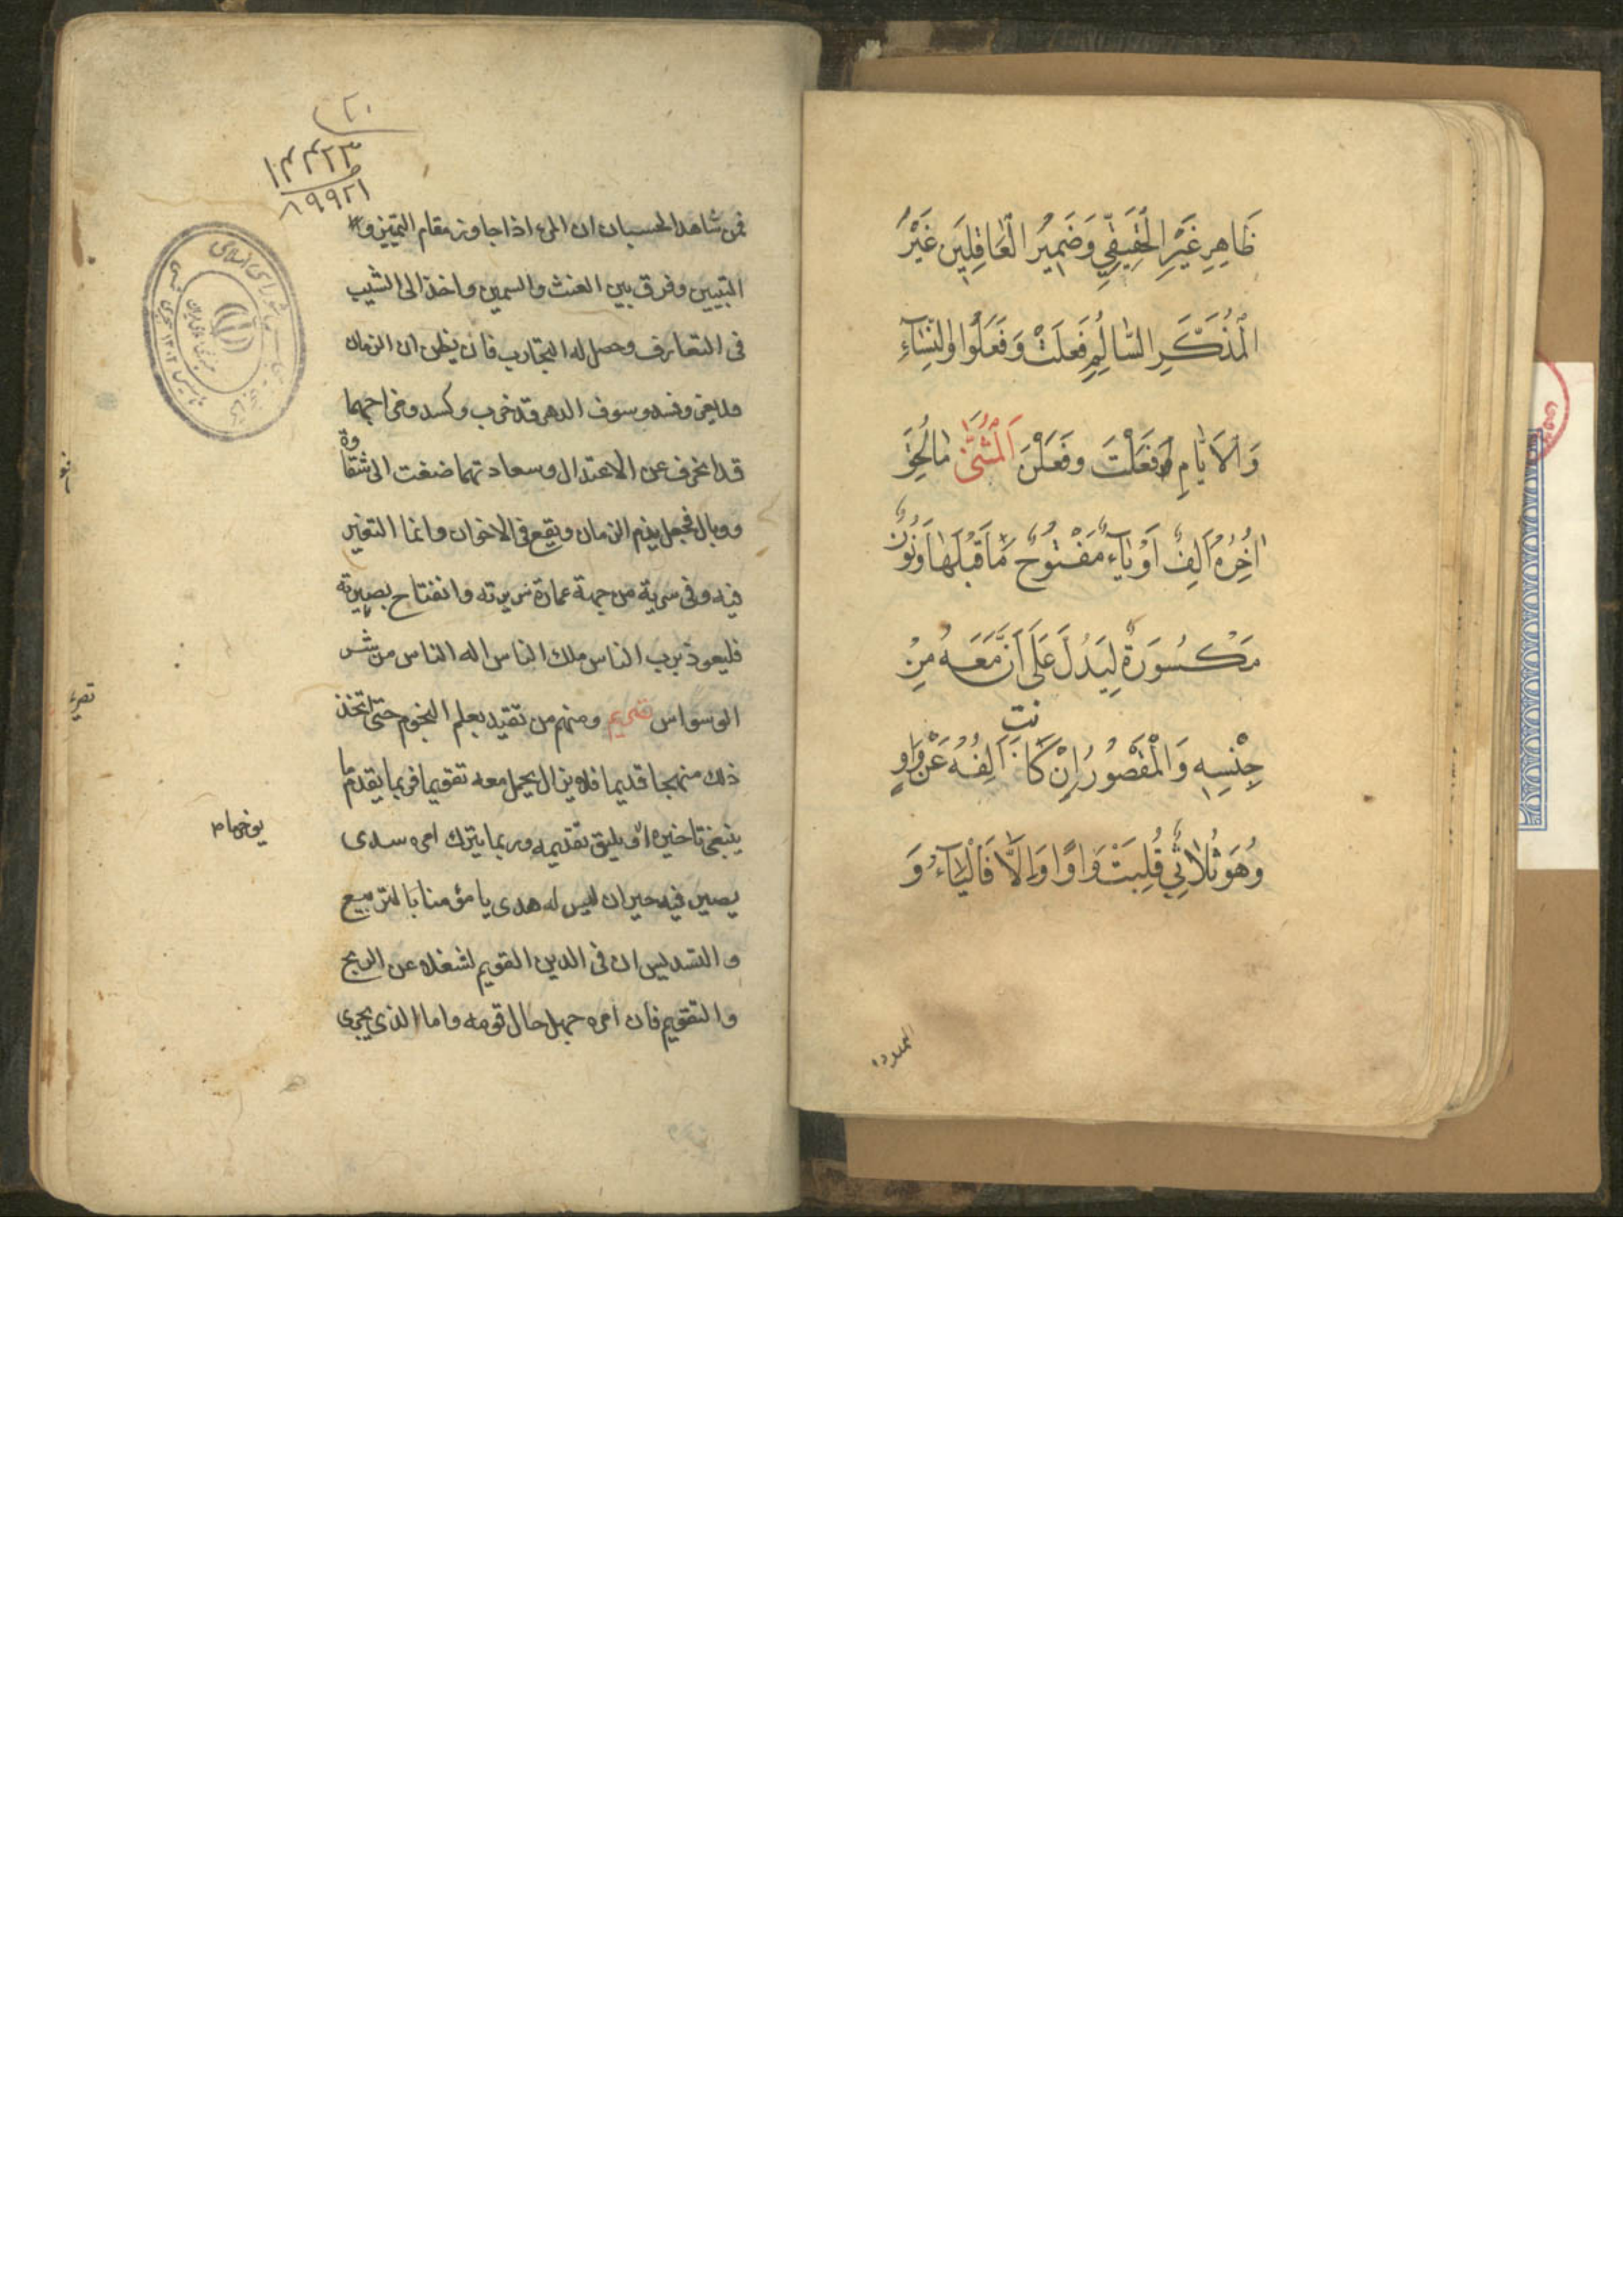 ظَاهِرِ غَيْرِ الْحَقِيقِيِّ وَضَمِيرُ الْعَاقِلِينَ غَيْرُ
الْمُذَكَّرِ السَّالِمِ فَعَلَتْ وَفَعَلُوا وَالنِّسَاءِ
وَالْأَيَّامِ فَعَلَتْ وَفَعَلْنَ اَلْمُثَنّٰى مَا لُحِقَ
اٰخِرُهُ اَلِفٌ اَوْ يَآءٌ مَفْتُوحٌ مَا قَبْلَهَا وَنُونٌ
مَكْسُورَةٌ لِيَدُلَّ عَلَى اَنَّ مَعَهُ مِنْ
جِنْسِهِ وَالْمَقْصُورُ إِنْ كَانَتْ اَلِفُهُ عَنْ وَاوٍ
وَهُوَ ثُلَاثِيٌّ قُلِبَتْ وَاوًا وَاِلَّا فَالْيَاءُ وَ
الممدود
٢٠
١٤٤٢٣
١٩٩٢١
فمن شاهد الحسبان ان المرء اذا جاوز مقام التميز و
التبيين وفرق بين الغث والسمين واخذ الى الشيب
فى التعارف وحصل له التجارب فان يظن ان الزمان
وفسد وسوف الدهر قد خرب وكسد ومزاجهما
قد انحرف عن الاعتدال وسعادتهما ضغت الى شقاوة
ووبال فجعل يذم الزمان ويقع فى الاخوان وانما التغير
فيه وفى سريه من جهة عمارة سريرته وانفتاح بصيرته
فليعوذ برب الناس ملك الناس اله الناس من شر
الوسواس ومنهم من تقيد بعلم النجوم حتى اتخذ
ذلك منهجا قديما فلا يزال يحمل معه تقويما فربما يقدم ما
ينبغى تاخيره او يليق تقديمه وربما يترك امره سدى
يصير فيه حيران ليس له هدى يا مؤمنا بالتربيع
والتسديس ان فى الدين القويم لشغلا عن الزيج
والتقويم فان امره جهل حال قومه واما الذى يجرى
يوخر ما